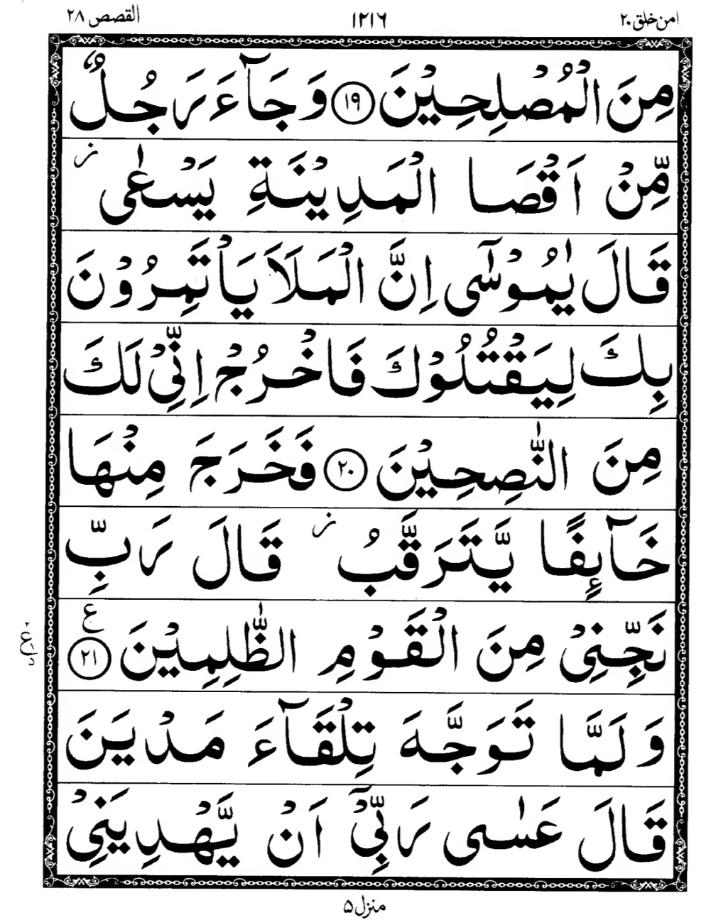 القصص ٢٨ ١٢١٦ امن خلق ٢٠
مِنَ الْمُصْلِحِيْنَ ﴿١٩﴾ وَ جَآءَ رَجُلٌ
مِّنْ اَقْصَا الْمَدِيْنَةِ يَسْعٰى ز
قَالَ يٰمُوْسٰٓى اِنَّ الْمَلَاَ يَاْتَمِرُوْنَ
بِكَ لِيَقْتُلُوْكَ فَاخْرُجْ اِنِّيْ لَكَ
مِنَ النّٰصِحِيْنَ ﴿٢٠﴾ فَخَرَجَ مِنْهَا
خَآىِٕفًا يَّتَرَقَّبُ ز قَالَ رَبِّ
نَجِّنِيْ مِنَ الْقَوْمِ الظّٰلِمِيْنَ ﴿٢١﴾ ع
وَ لَمَّا تَوَجَّهَ تِلْقَآءَ مَدْيَنَ
قَالَ عَسٰى رَبِّيْٓ اَنْ يَّهْدِيَنِيْ
منزل ٥